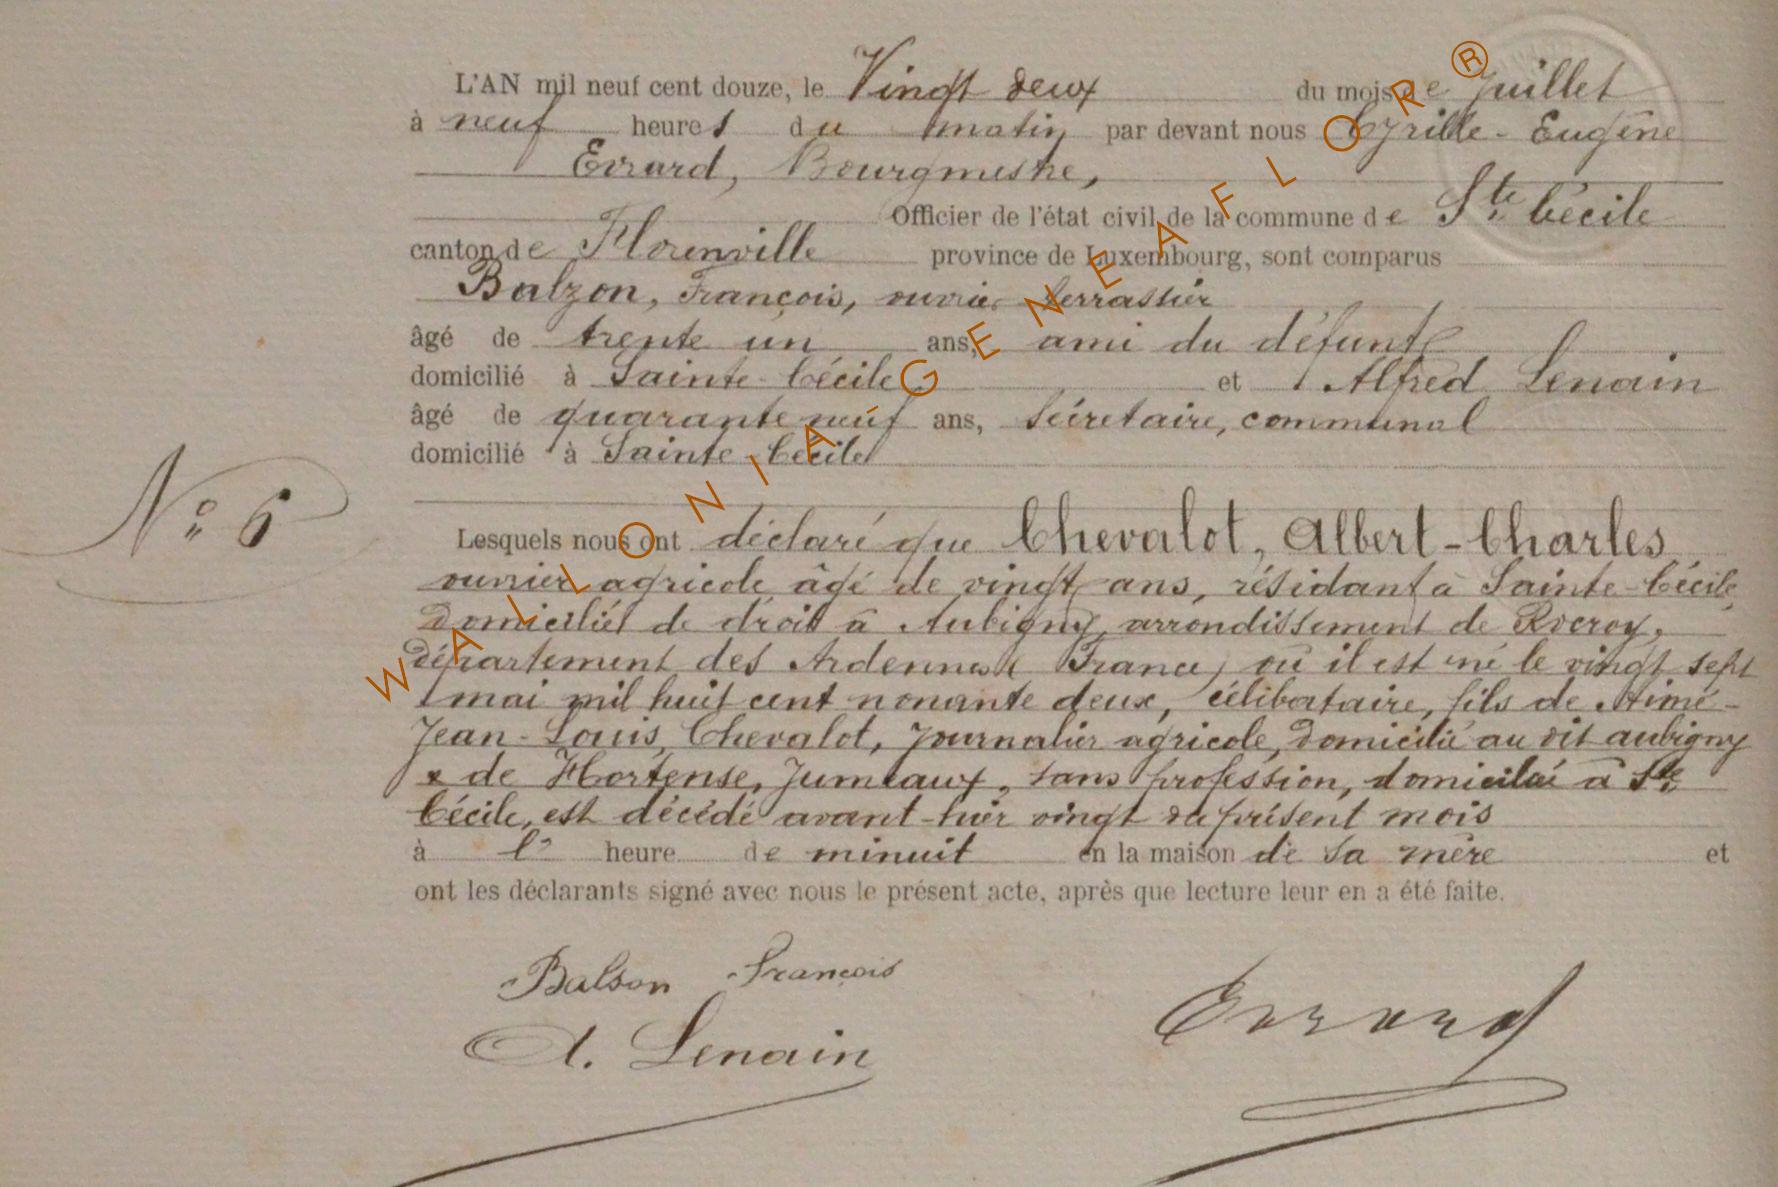 L'AN mil neuf cent douze, le Vingt deux du mois de Juillet
à neuf heures du matin par devant nous Cyrille-Eugène
Evrard, Bourgmestre,
Officier de l'état civil de la commune de Ste Cécile
canton de Florenville province de Luxembourg, sont comparus
Balzon, François, ouvrier terrassier
âgé de trente un ans, ami du défunt
domicilié à Sainte-Cécile et Alfred Lenain
âgé de quarante neuf ans, secrétaire, communal
domicilié à Sainte-Cécile
N° 6
Lesquels nous ont déclaré que Chevalot, Albert-Charles
ouvrier agricole âgé de vingt ans, résidant à Sainte-Cécile,
domicilié de droit à Aubigny, arrondissement de Rocroy,
département des Ardennes (France) où il est né le vingt sept
mai mil huit cent nonante deux, célibataire, fils de Aimé-
Jean-Louis Chevalot, journalier agricole, domicilié au dit aubigny
& de Hortense, Jumeaux, sans profession, domicilié à Ste
Cécile, est décédé avant-hier vingt du présent mois
à l' heure de minuit en la maison de sa mère et
ont les déclarants signé avec nous le présent acte, après que lecture leur en a été faite.
Balson François
A. Lenain
Evrard
WALLONIA-GENEAFLOR®